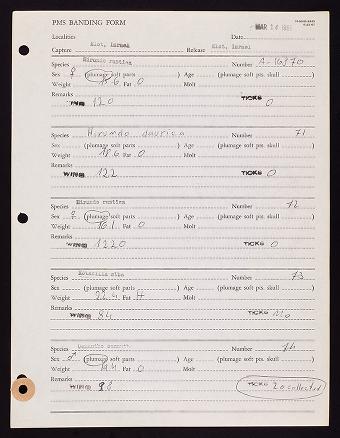 PMS BANDING FORM
MAR 14
Localities Date
Capture Elat, Israel Release Elat, Israel
Species Hirundo rustica Number A-16970
Sex ♀ (plumage soft parts ) Age (plumage soft pts. skull )
Weight 15.6 Fat 0 Molt
Remarks
WING 120 TICKS 0
Species Hirundo daurica Number 71
Sex (plumage soft parts ) Age (plumage soft pts. skull )
Weight 18.6 Fat 0 Molt
Remarks
WING 122 TICKS 0
Species Hirundo rustica Number 72
Sex ♀ (plumage soft parts ) Age (plumage soft pts. skull )
Weight 16.1 Fat 0 Molt
Remarks
WING 122.0 TICKS 0
Species Motacilla alba Number 73
Sex (plumage soft parts ) Age (plumage soft pts. skull )
Weight 22.4 Fat Molt
Remarks
WING 84 TICKS No
Species Oenanthe Number 74
Sex ♂ (plumage soft parts ) Age (plumage soft pts. skull )
Weight 19.4 Fat 0 Molt
Remarks
WING 98 TICKS 20 collected